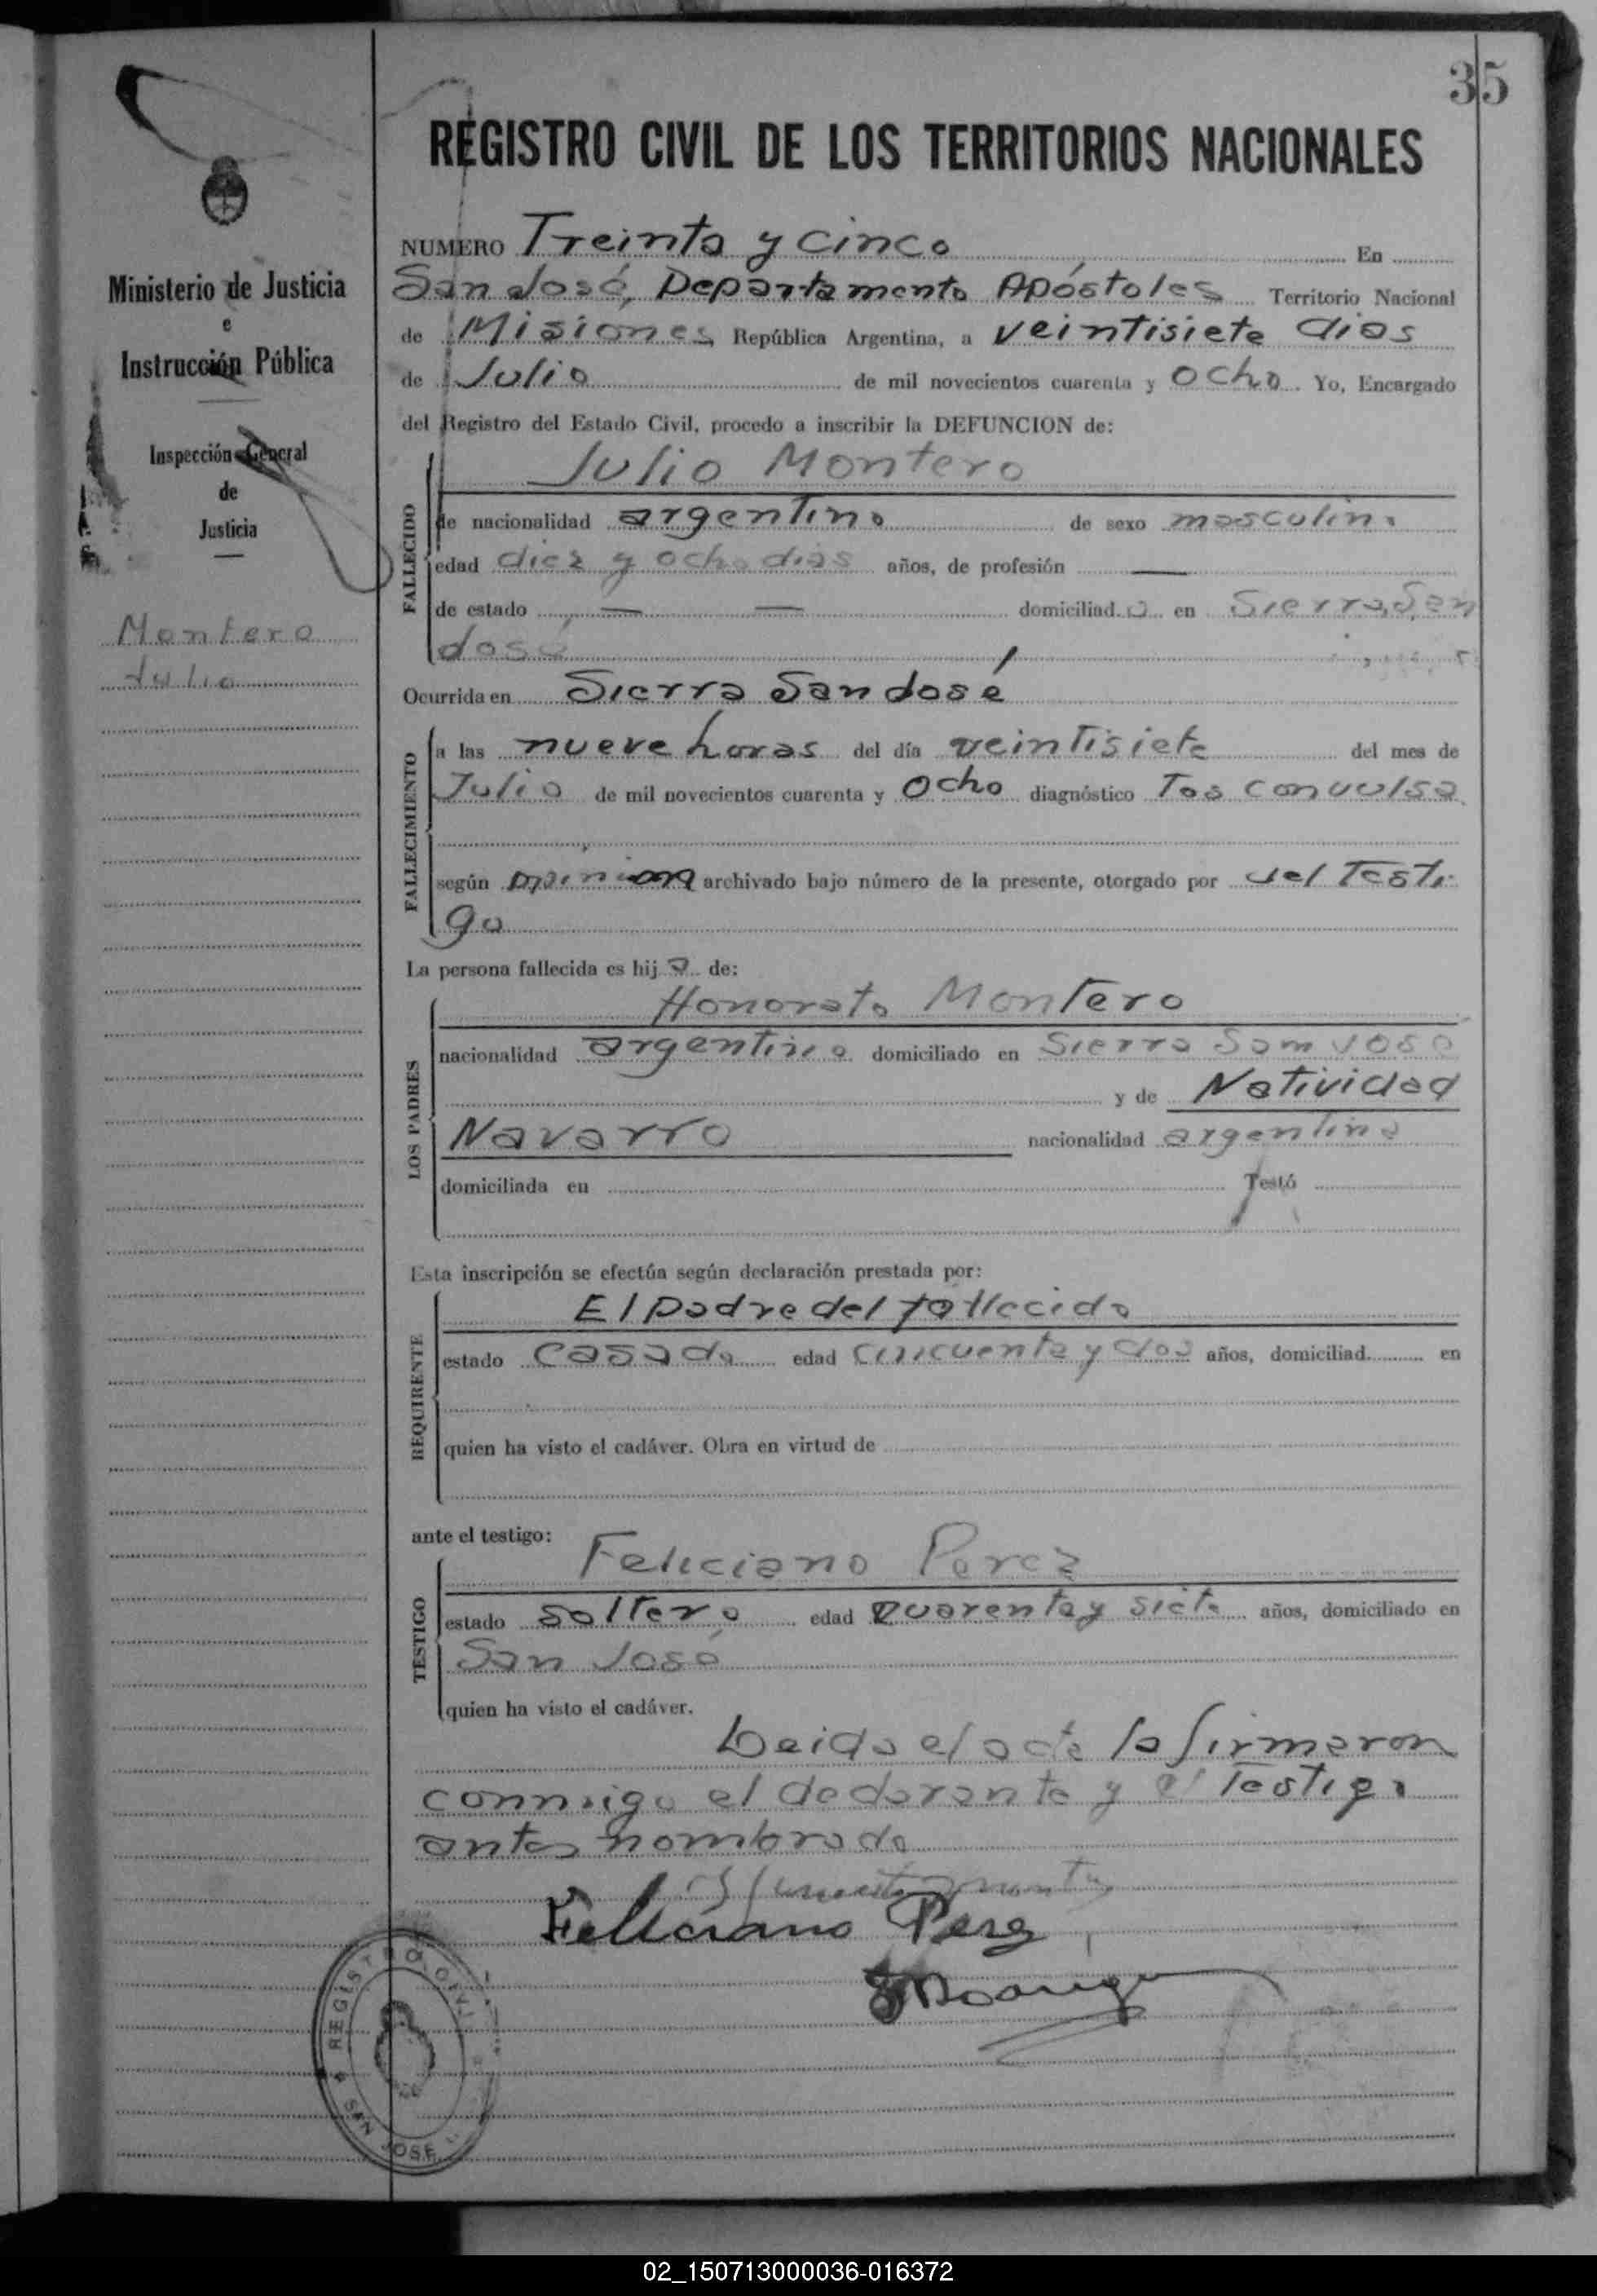 35
REGISTRO CIVIL DE LOS TERRITORIOS NACIONALES
Ministerio de Justicia
e
Instrucción Pública
Inspección General
de
Justicia
Montero
Julio
NUMERO Treinta y cinco En
San José, Departamento Apóstoles Territorio Nacional
de Misiones República Argentina, a veintisiete dias
de Julio de mil novecientos cuarenta y ocho. Yo, Encargado
del Registro del Estado Civil, procedo a inscribir la DEFUNCION de:
FALLECIDO
Julio Montero
de nacionalidad argentino de sexo masculino
edad diez y ocho dias años, de profesión —
de estado — — domiciliad.o en Sierra, San
José
Ocurrida en Sierra San José
FALLECIMIENTO
a las nueve horas del día veintisiete del mes de
Julio de mil novecientos cuarenta y ocho diagnóstico Tos convulsa
según archivado bajo número de la presente, otorgado por del testi
go
La persona fallecida es hij o de:
LOS PADRES
Honorato Montero
nacionalidad argentino domiciliado en Sierra San José
y de Natividad
Navarro nacionalidad argentina
domiciliada en Testó
Esta inscripción se efectúa según declaración prestada por:
REQUIRENTE
El padre del fallecido
estado casado edad cincuenta y dos años, domiciliad en
quien ha visto el cadáver. Obra en virtud de
ante el testigo:
TESTIGO
Feliciano Perez
estado soltero edad cuarenta y siete años, domiciliado en
San José
quien ha visto el cadáver.
Leida el acta la firmaron
conmigo el declarante y el testigo
antes nombrado
Feliciano Perez
REGISTRO CIVIL
SAN JOSE
02_150713000036-016372